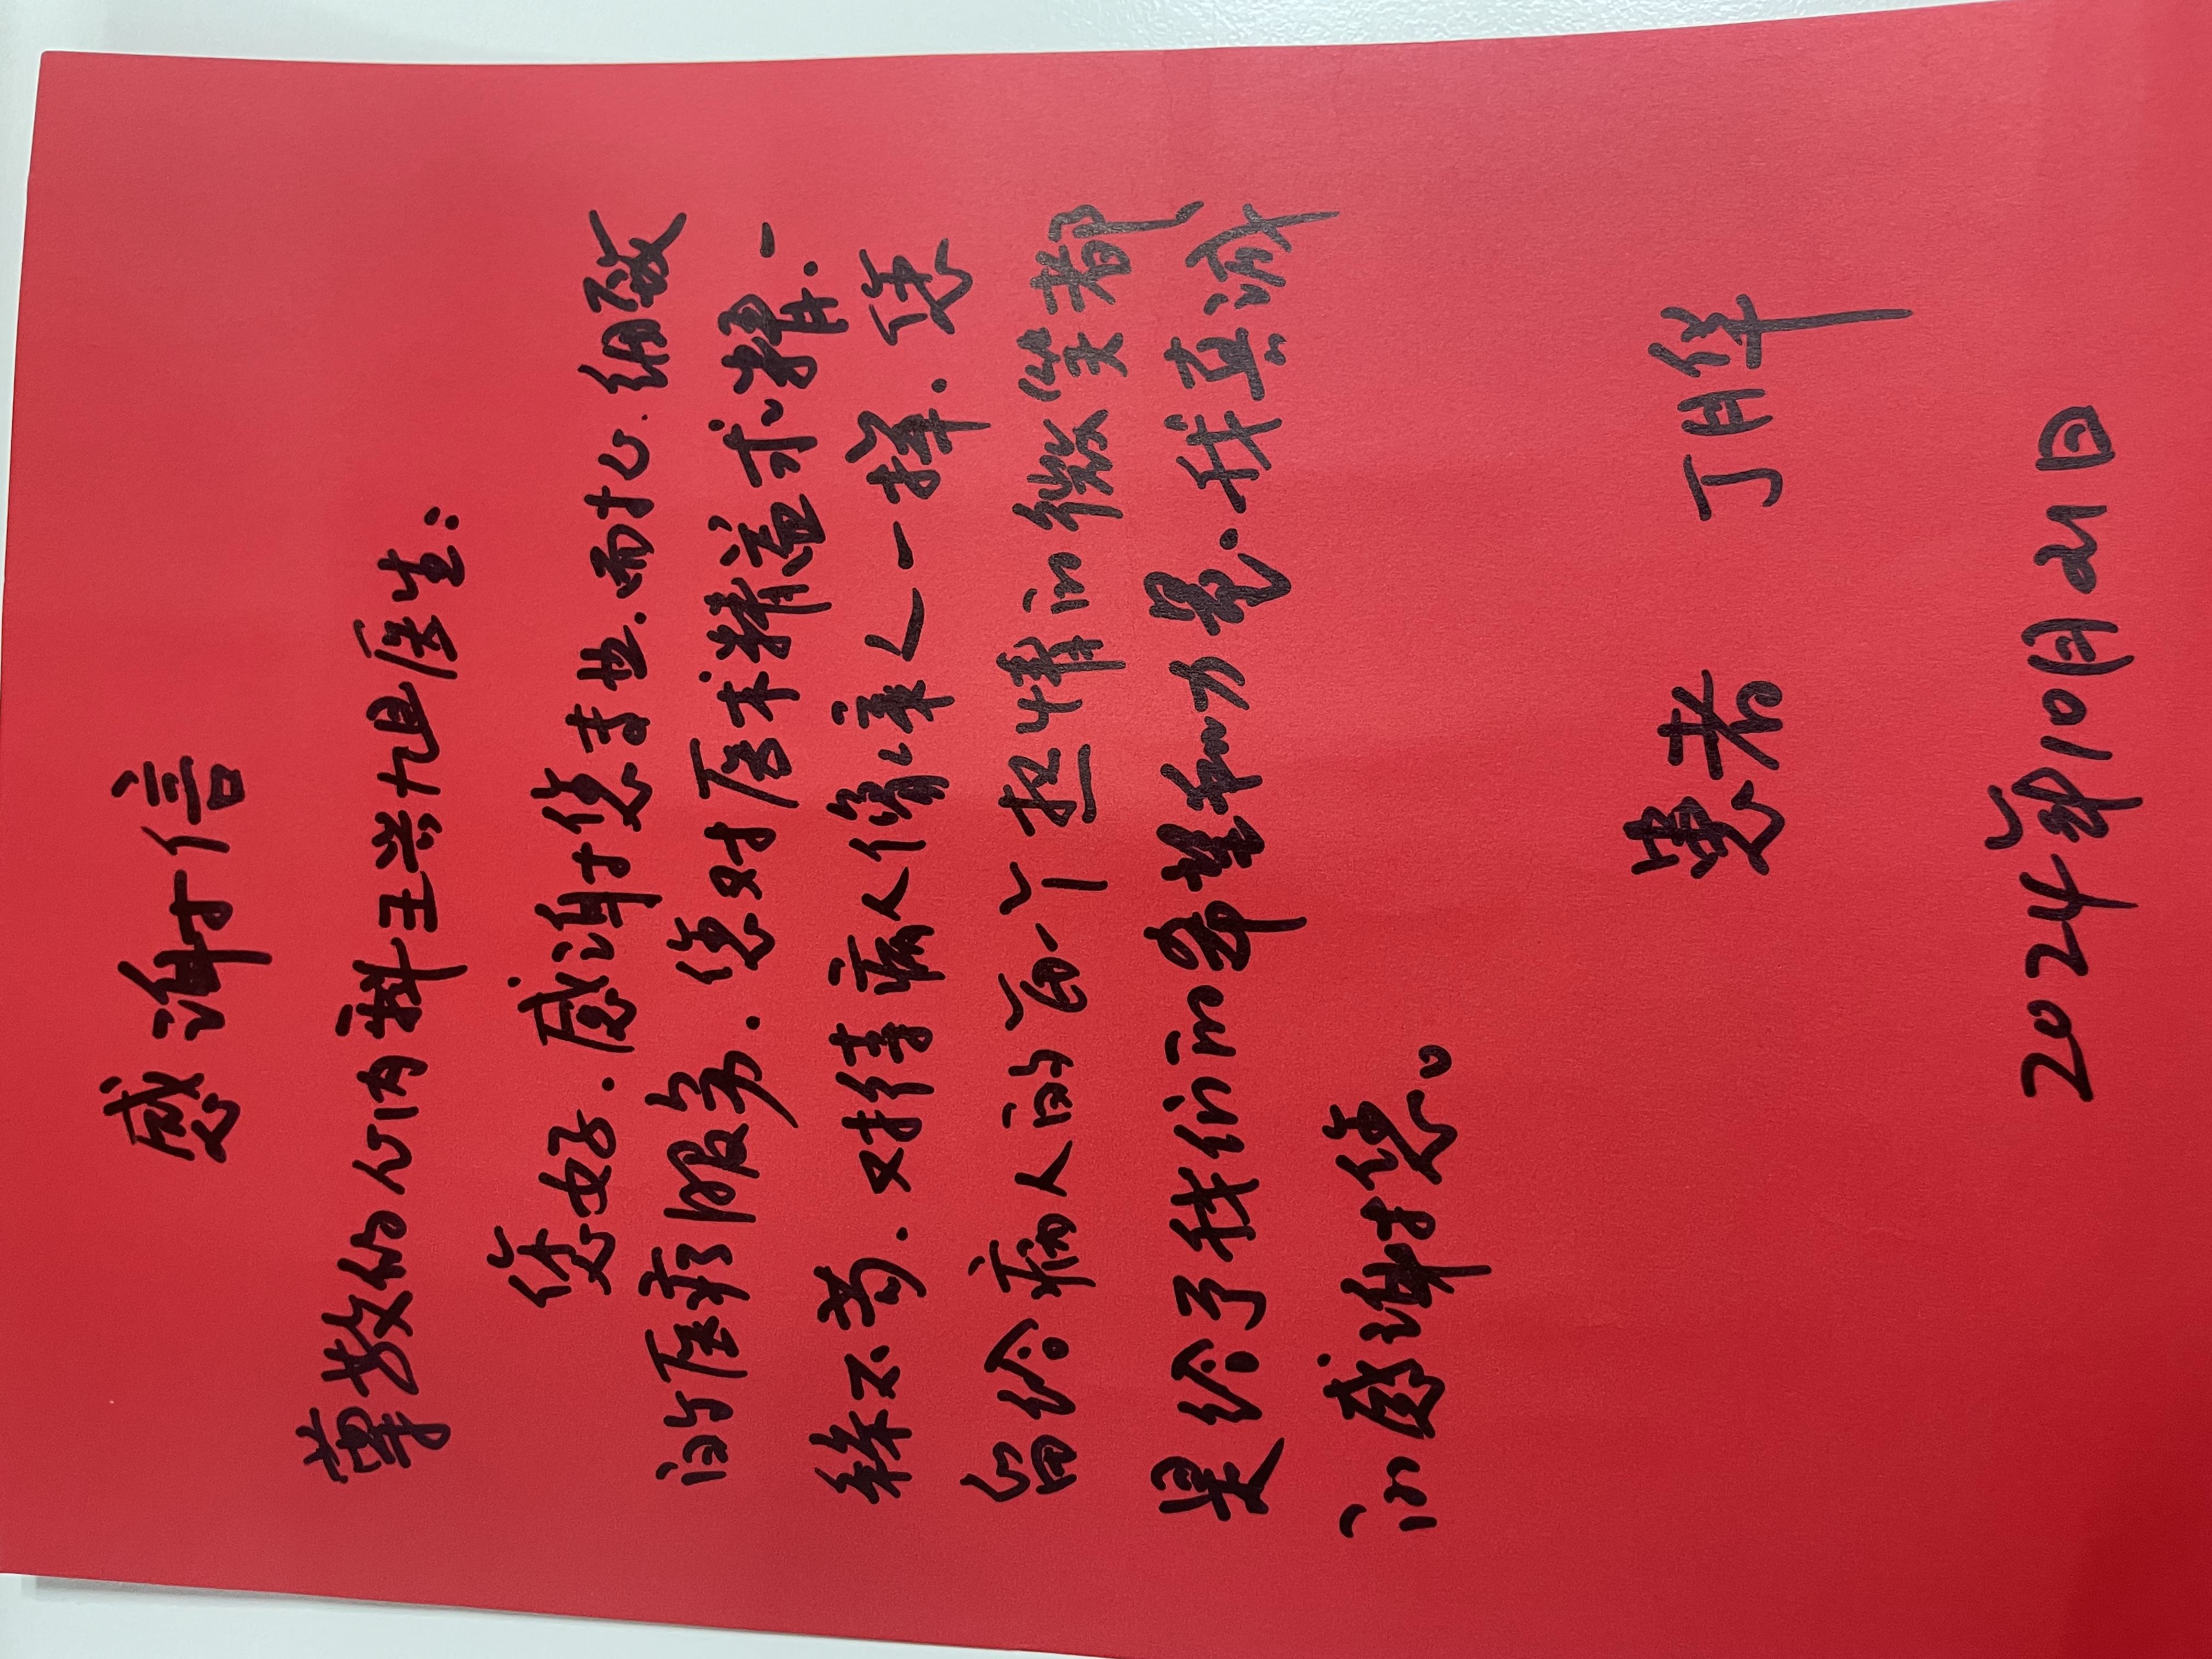 感谢信
尊敬的心内科王兴旭医生:
您好.感谢您专业.耐心.细致
的医疗服务.您对医术精益求精.一
丝不苟.对待病人像亲人一样.您
留给病人的每一个热情的微笑都
是给了我们的希望和力量.我真诚
的感谢您。
患者 丁胜华
2024年10月21日